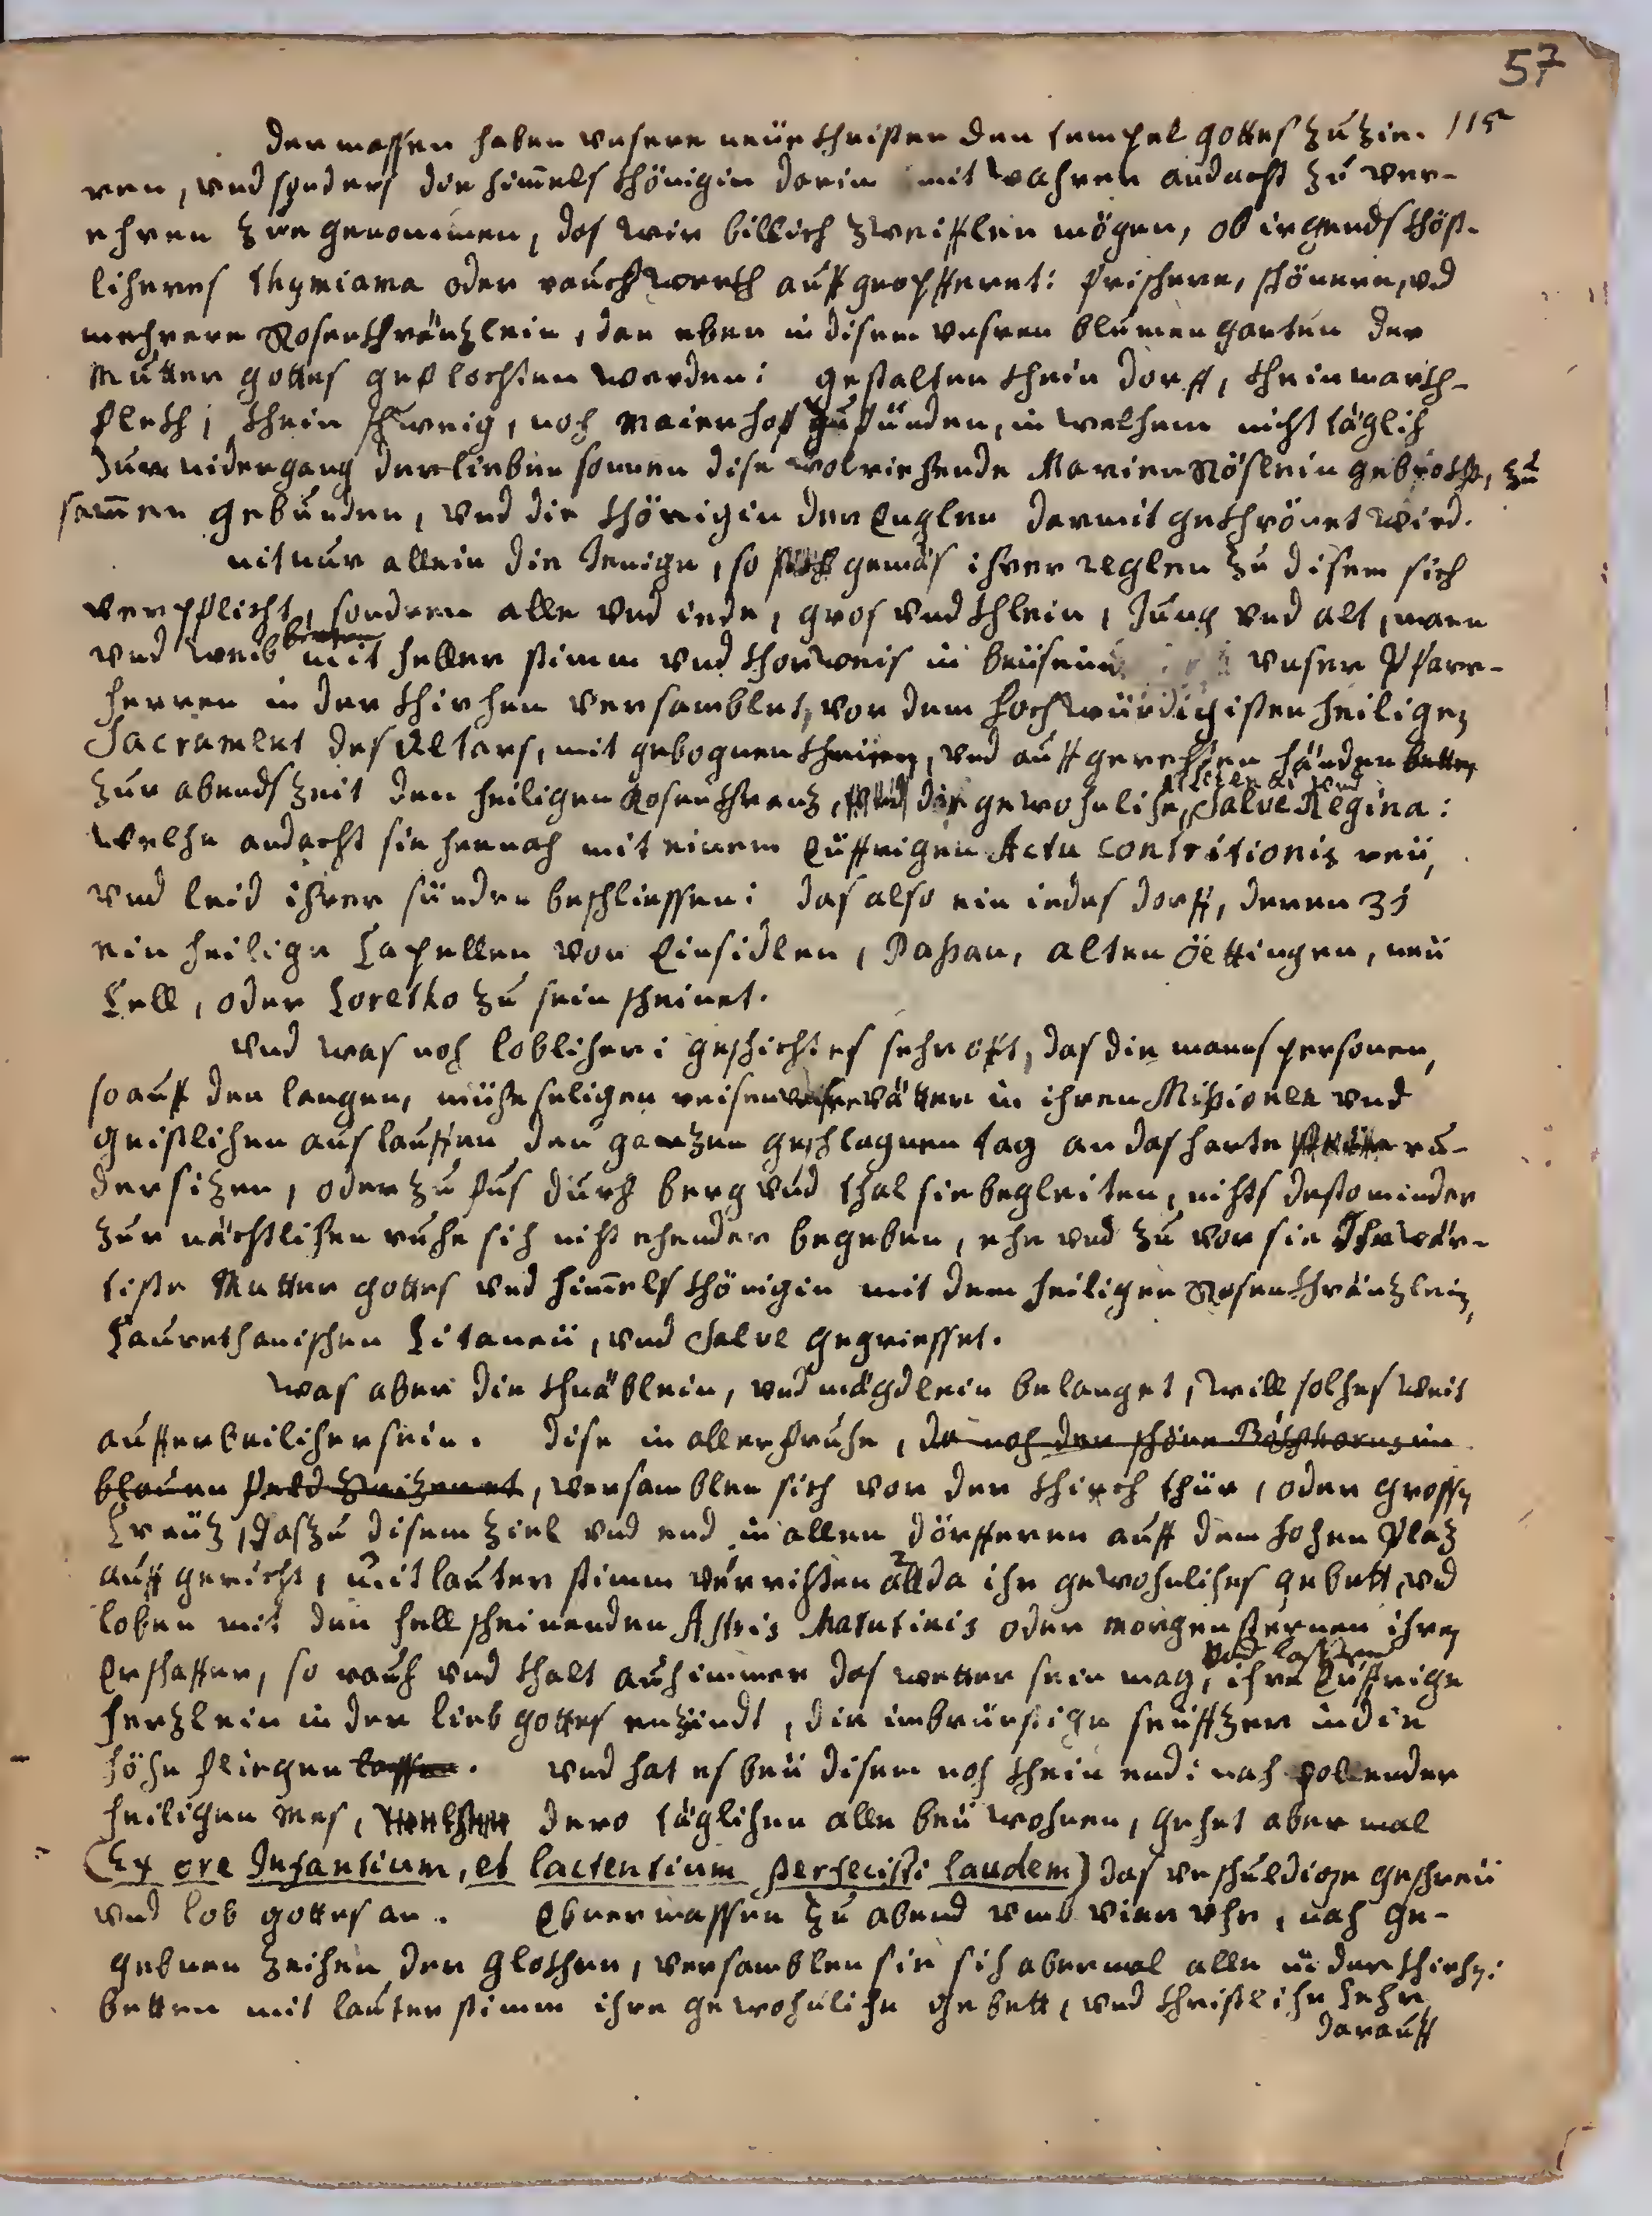 57
der massen haben unsere neüe Christen den tempel gottes zu zie- 115
ren, und sonders die himmels khönigin darin mit wahrer andacht zu ver-
ehren zue genommen, das wir billich zweifflen mögen, ob irgends khöst-
lichers thymiama oder rauchwerch auffgeopfferet: frischere, schönere, und
mehrere Rosenkhräntzlein, dan eben in disem unsren blumen garten der
Mutter gottes geflochten werden: gestalten khein dorff, khein markh-
flekh, khein schweig, noch Maierhof zu fünden, in welchem nicht täglich
zum nidergang der lieben sonnen dise wolriechende Marien Röslein gebrokht, zu
sammen gebunden, und die khönigin der Englen darmit gekhrönet wird.
nit nur allein die Jenige, so gemäs ihrer reglen zu disem sich
verpflicht, sondern alle und iede, gros und khlein, Jung und alt, mann
und weib betten mit heller stimm und chorweis in beüsein unser Pfarr-
herren in der khirchen versamblet, vor dem hochwürdigisten heiligen
Sacrament des Altars, mit gebognen khnien, und auffgerekhten händen betten
zur abends zeit den heiligen Rosenkhrantz, die gewohnliche, Litanei und Salve Regina:
welche andacht sie hernach mit einem Eüffrigen Actu Contritionis reü,
und leid ihrer sünden beschliessen: das also ein iedes dorff, deren 31
ein heilige Capellen von Einsidlen, Passau, alten öettingen, neü
Cell, oder Loretho zu sein scheinet.
Und was noch loblicher: geschicht es sehr offt, das die manspersonen,
so auff den langen, müheseligen reisen unsere vätter in ihren Missionen und
geistlichen auslauffen den gantzen geschlagnen tag an das harte ru-
der sitzen, oder zu fus durch berg und thal sie begleiten, nichts destominder
zur nächtlichen ruhe sich nicht ehender begeben, ehe und zu vor sie Ihr wär-
tiste Mutter gottes und himmels khönigin mit dem heiligen Rosenkhräntzlein,
Laurethanischen Litaneü, und Salve gegriesset.
Was aber die khnäblein, und mägdlein belanget, will solches weit
aufferbeilicher sein. dise in aller fruhe, da noch der schöne Bosphorus im
blauen feld glitzeret, versamblen sich vor der khirch thür, oder grossen
Creütz, das zu disem ziel und end in allen dörfferen auff dem hohen Platz
auffgericht, mit lauter stimm verrichten allda ihr gewohnliches gebett, und
loben mit den hellscheinenden Astris Matutinis oder morgensternen ihren
Erschaffer, so rauch und khalt auch immer das wetter sein mag, und lassen ihre Eüffrige
hertzlein in der lieb gottes entzindt, die inbrünstige seüfftzer in die
höhe fliegen lassen. Und hat es beü disem noch khein end: nach vollender
heiligen Mes, dero täglichen alle beü wohnen, gehet aber mal
(Ex ore Infantium, et lactentium perfecisti laudem) das unschuldige geschreü
und lob gottes an. Ebnermassen zu abend umb vier uhr, nach ge-
gebnen zeichen der Glokhen, versamblen sie sich abermal alle in der khirchen:
betten mit lauter stimm ihre gewohnliche gebett, und christliche Lehr
darauff